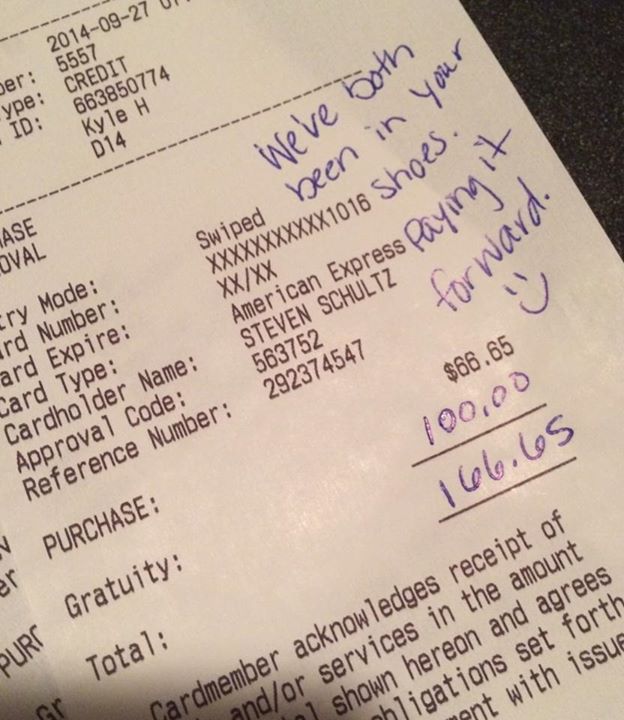 2014-09-27
5557
ype: CREDIT
ID: 663850774
Kyle H
D14
We've both
been in your
shoes.
Paying it
forward.
Swiped
XXXXXXXXXXX1016
XX/XX
Card Type: American Express
Cardholder Name: STEVEN SCHULTZ
Approval Code: 563752
Reference Number: 292374547
PURCHASE: $66.65
Gratuity: 100.00
Total: 166.65
Cardmember acknowledges receipt of
and/or services in the amount
shown hereon and agrees
obligations set forth
with